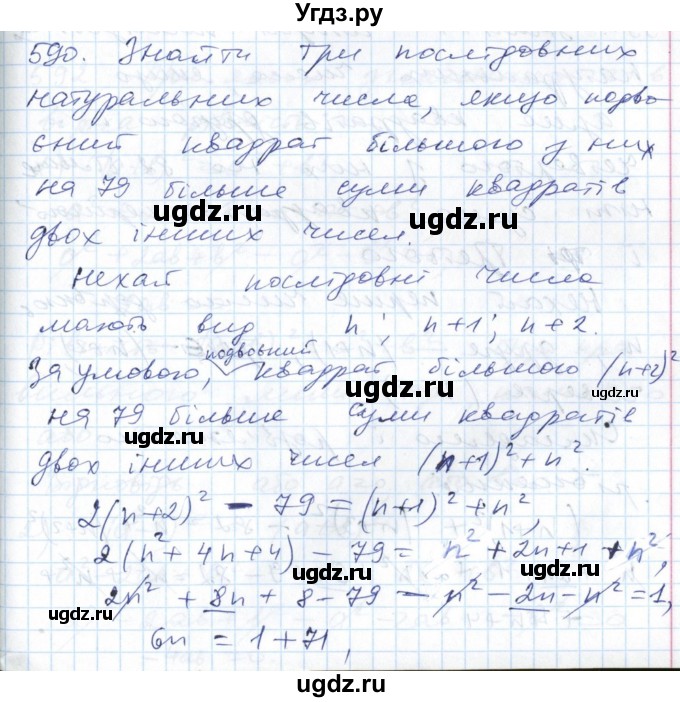 Угдз.ру
590. Знайти три послідовних
натуральних числа, якщо подво
єний квадрат більшого з них
на 79 більше суми квадратів
ugdz.ru ugdz.ru
двох інших чисел.
ugdz.ru
Нехай послідовні числа
мають вид n; n+1; n+2.
ugdz.ru
подвоєний
За умовою, квадрат більшого (n+2)²
ugdz.ru
на 79 більше суми квадратів
ugdz.ru
двох інших чисел (n+1)² + n².
ugdz.ru
2(n+2)² - 79 = (n+1)² + n²,
2(n² + 4n + 4) - 79 = n² + 2n+1 + n²,
ugdz.ru
2n² + 8n + 8 - 79 - n² - 2n - n² = 1,
ugdz.ru
6n = 1 + 71,
ugdz.ru
ugdz.ru